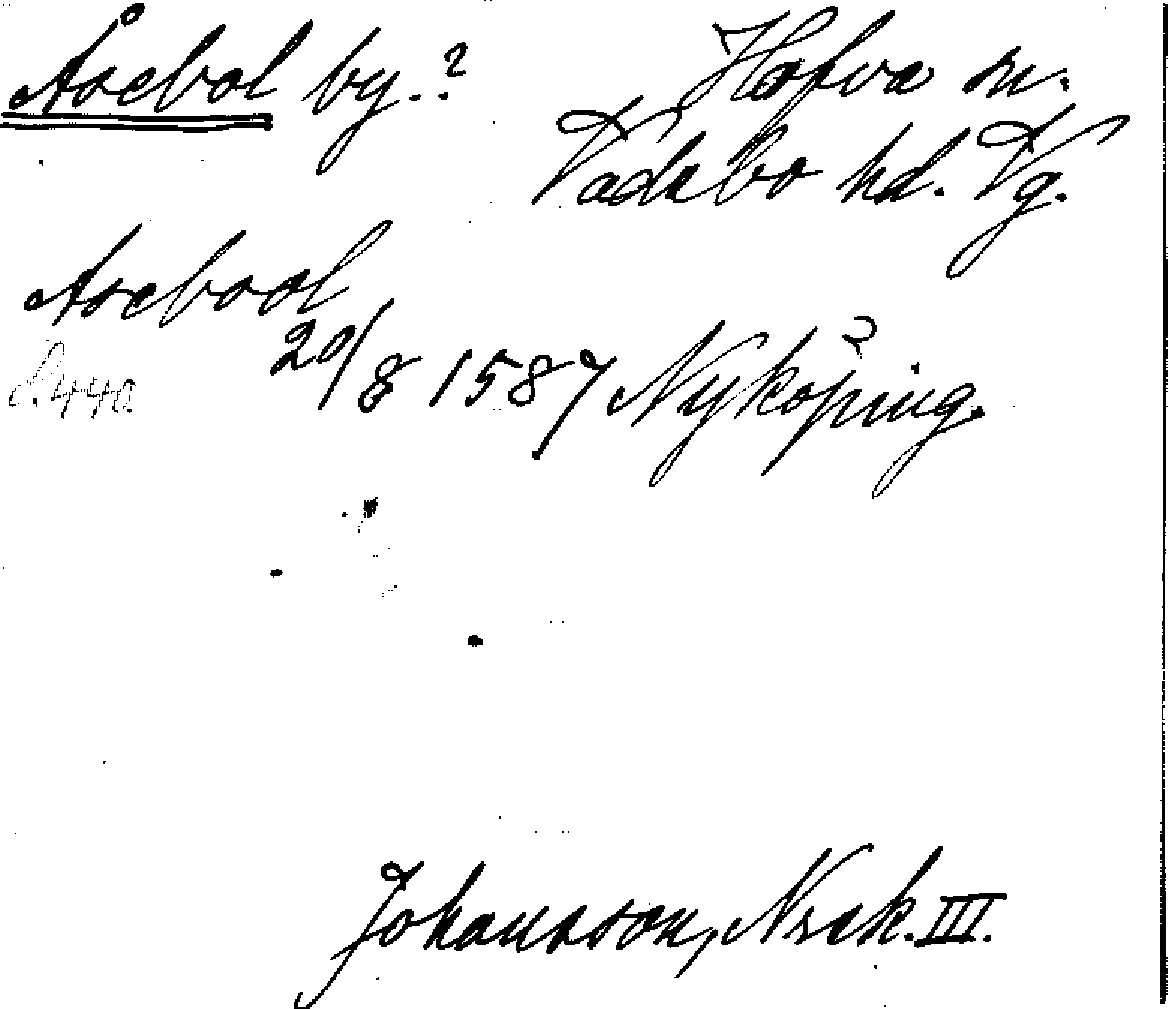 Åsebol by.?
Hofva sn.
Vadsbo hd. Vg.
Asebool
20/8 1587 Nyköping.
Johansson, Nrsk. III.